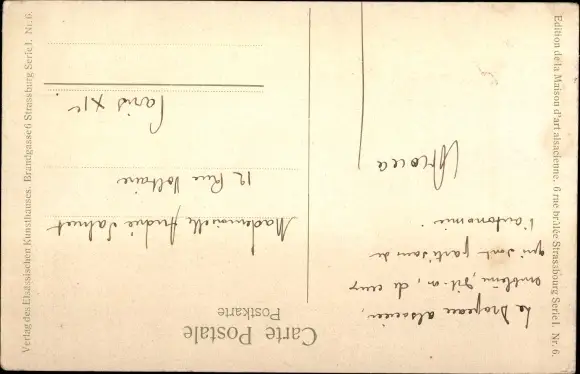 Carte Postale
Postkarte
Le Drapeau alsacien,
emblème, dit-on, de ceux
qui sont partisans de
l'autonomie.
Mademoiselle André
12 Rue Voltaire
Paris XIe.
Verlag des Elsässischen Kunsthauses. Brandgasse 6 Strassburg Serie I. Nr. 6.
Edition de la Maison d'art alsacienne. 6 rue brûlée Strassbourg Serie I. Nr. 6.